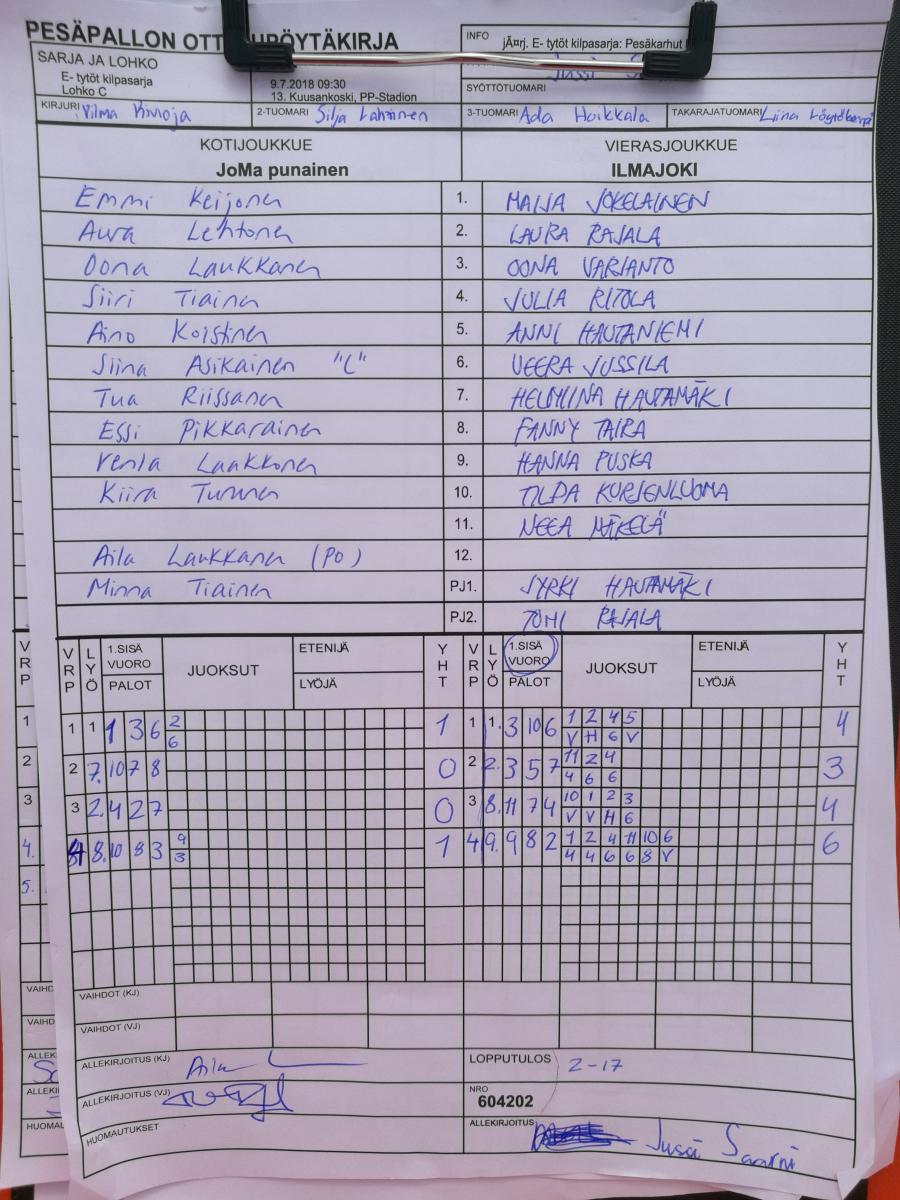 PESÄPALLON OTT UPÖYTÄKIRJA
INFO jÃ¤rj. E- tytöt kilpasarja: Pesäkarhut
SARJA JA LOHKO
E- tytöt kilpasarja
Lohko C
9.7.2018 09:30
13. Kuusankoski, PP-Stadion
SYÖTTÖTUOMARI
KIRJURI Vilma 2-TUOMARI Silja 3-TUOMARI Ada Hoikkala TAKARAJATUOMARI Liina
KOTIJOUKKUE VIERASJOUKKUE
JoMa punainen ILMAJOKI
Emmi Keijonen 1. MAIJA JOKELAINEN
Aura Lehtonen 2. LAURA RAJALA
Oona Laukkanen 3. OONA VARIANTO
Siiri Tiainen 4. JULIA RITOLA
Aino Koistinen 5. ANNI HAUTANIEMI
Siina Asikainen "L" 6. VEERA JUSSILA
Tua Riissanen 7. HELMIINA HAUTAMÄKI
Essi Pikkarainen 8. FANNY TAIRA
Venla Laakkonen 9. HANNA PUSKA
Kiira Turunen 10. TILDA KURJENLUOMA
11. NEEA MÄKELÄ
Aila Laukkanen (PO) 12.
Minna Tiainen PJ1. JYRKI HAUTAMÄKI
PJ2. TOMI RAJALA
VRP VRP LYÖ 1.SISÄ VUORO PALOT JUOKSUT ETENIJÄ LYÖJÄ YHT VRP LYÖ 1.SISÄ VUORO PALOT JUOKSUT ETENIJÄ LYÖJÄ YHT
1 1 1 1 3 6 2 1 1 1. 3 10 6 1 2 4 5 4
6 V H 6 V
2 2 7. 10 7 8 0 2 2. 3 5 7 11 2 4 3
4 6 6
3 3 2. 4 2 7 0 3 8. 11 7 4 10 1 2 3 4
V V H 6
4. 4 8. 10 8 3 9 1 4 9. 9 8 2 1 2 4 11 10 6 6
3 4 4 6 6 8 V
5.
VAIHD VAIHDOT (KJ)
VAIHD VAIHDOT (VJ)
ALLEK ALLEKIRJOITUS (KJ) Aila L LOPPUTULOS 2-17
ALLEKI ALLEKIRJOITUS (VJ) NRO
604202
HUOMAU HUOMAUTUKSET ALLEKIRJOITUS Jussi Saarni